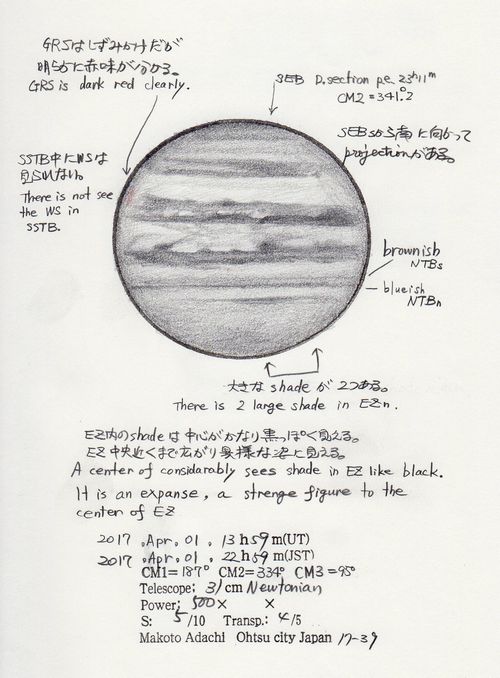 GRSはしずみかけだが
明らかに赤味が分かる。
GRS is dark red clearly.
SEB D.section p.e. 23h11m
CM2=341.°2
SEBsから南に向かって
projectionがある。
SSTB中にWSは
見られない。
There is not see
the WS in
SSTB.
brownish
NTBs
blueish
NTBn
大きな shade が 2つある。
There is 2 large shade in EZn.
EZ内のshadeは中心がかなり黒っぽく見える。
EZ中央近くまで広がり異様な姿に見える。
A center of considarably sees shade in EZ like black.
It is an expanse, a strenge figure to the
center of EZ
2017 .Apr. 01 . 13 h 59 m(UT)
2017 .Apr. 01 . 22 h 59 m(JST)
CM1=187° CM2=334° CM3=95°
Telescope: 31 cm Newtonian
Power: 500× ×
S: 5/10 Transp.: 4/5
Makoto Adachi Ohtsu city Japan 17-39